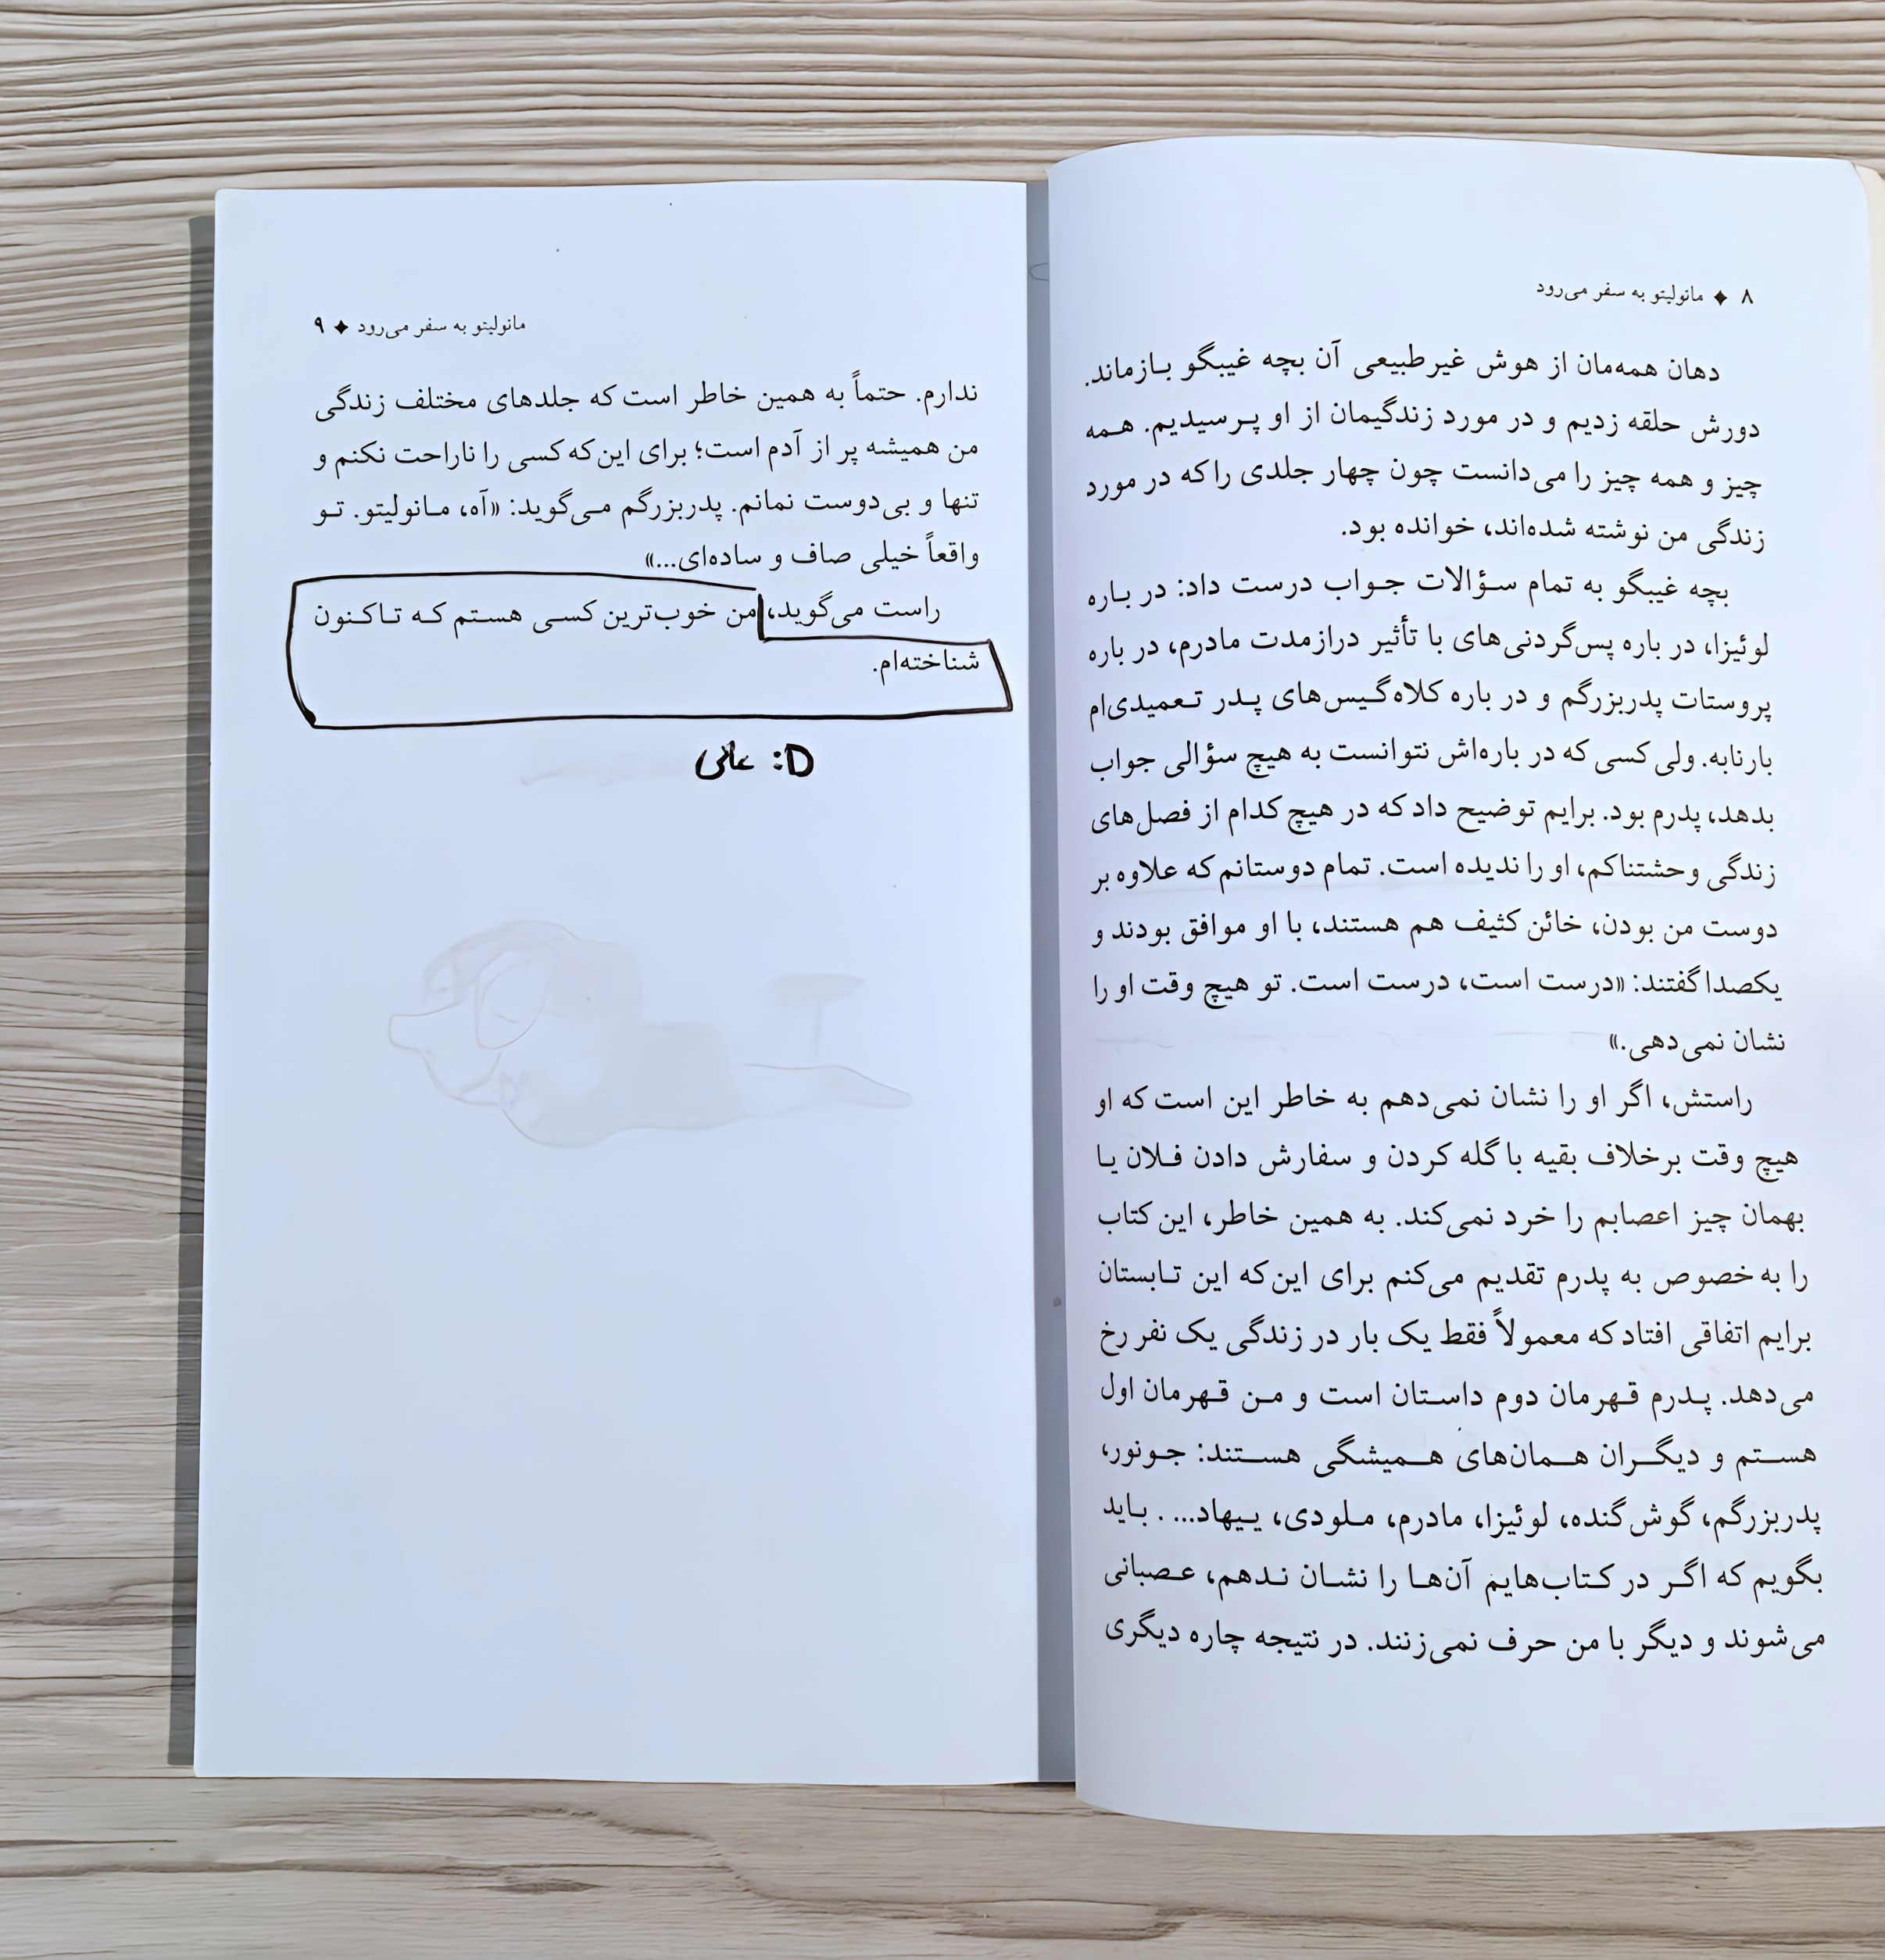 ۸ ◆ مانولیتو به سفر می‌رود
دهان همه‌مان از هوش غیرطبیعی آن بچه غیبگو بازماند.
دورش حلقه زدیم و در مورد زندگیمان از او پرسیدیم. همه
چیز و همه چیز را می‌دانست چون چهار جلدی را که در مورد
زندگی من نوشته شده‌اند، خوانده بود.
بچه غیبگو به تمام سؤالات جواب درست داد: در باره
لوئیزا، در باره پس‌گردنی‌های با تأثیر درازمدت مادرم، در باره
پروستات پدربزرگم و در باره کلاه‌گیس‌های پدر تعمیدی‌ام
بارنابه. ولی کسی که در باره‌اش نتوانست به هیچ سؤالی جواب
بدهد، پدرم بود. برایم توضیح داد که در هیچ کدام از فصل‌های
زندگی وحشتناکم، او را ندیده است. تمام دوستانم که علاوه بر
دوست من بودن، خائن کثیف هم هستند، با او موافق بودند و
یکصدا گفتند: «درست است، درست است. تو هیچ وقت او را
نشان نمی‌دهی.»
راستش، اگر او را نشان نمی‌دهم به خاطر این است که او
هیچ وقت برخلاف بقیه با گله کردن و سفارش دادن فلان یا
بهمان چیز اعصابم را خرد نمی‌کند. به همین خاطر، این کتاب
را به خصوص به پدرم تقدیم می‌کنم برای این‌که این تابستان
برایم اتفاقی افتاد که معمولاً فقط یک بار در زندگی یک نفر رخ
می‌دهد. پدرم قهرمان دوم داستان است و من قهرمان اول
هستم و دیگران همان‌های همیشگی هستند: جونور،
پدربزرگم، گوش‌گنده، لوئیزا، مادرم، ملودی، ییهاد... . باید
بگویم که اگر در کتاب‌هایم آن‌ها را نشان ندهم، عصبانی
می‌شوند و دیگر با من حرف نمی‌زنند. در نتیجه چاره دیگری
مانولیتو به سفر می‌رود ◆ ۹
ندارم. حتماً به همین خاطر است که جلدهای مختلف زندگی
من همیشه پر از آدم است؛ برای این‌که کسی را ناراحت نکنم و
تنها و بی‌دوست نمانم. پدربزرگم می‌گوید: «آه، مانولیتو. تو
واقعاً خیلی صاف و ساده‌ای...»
راست می‌گوید، من خوب‌ترین کسی هستم که تاکنون
شناخته‌ام.
عالی :D